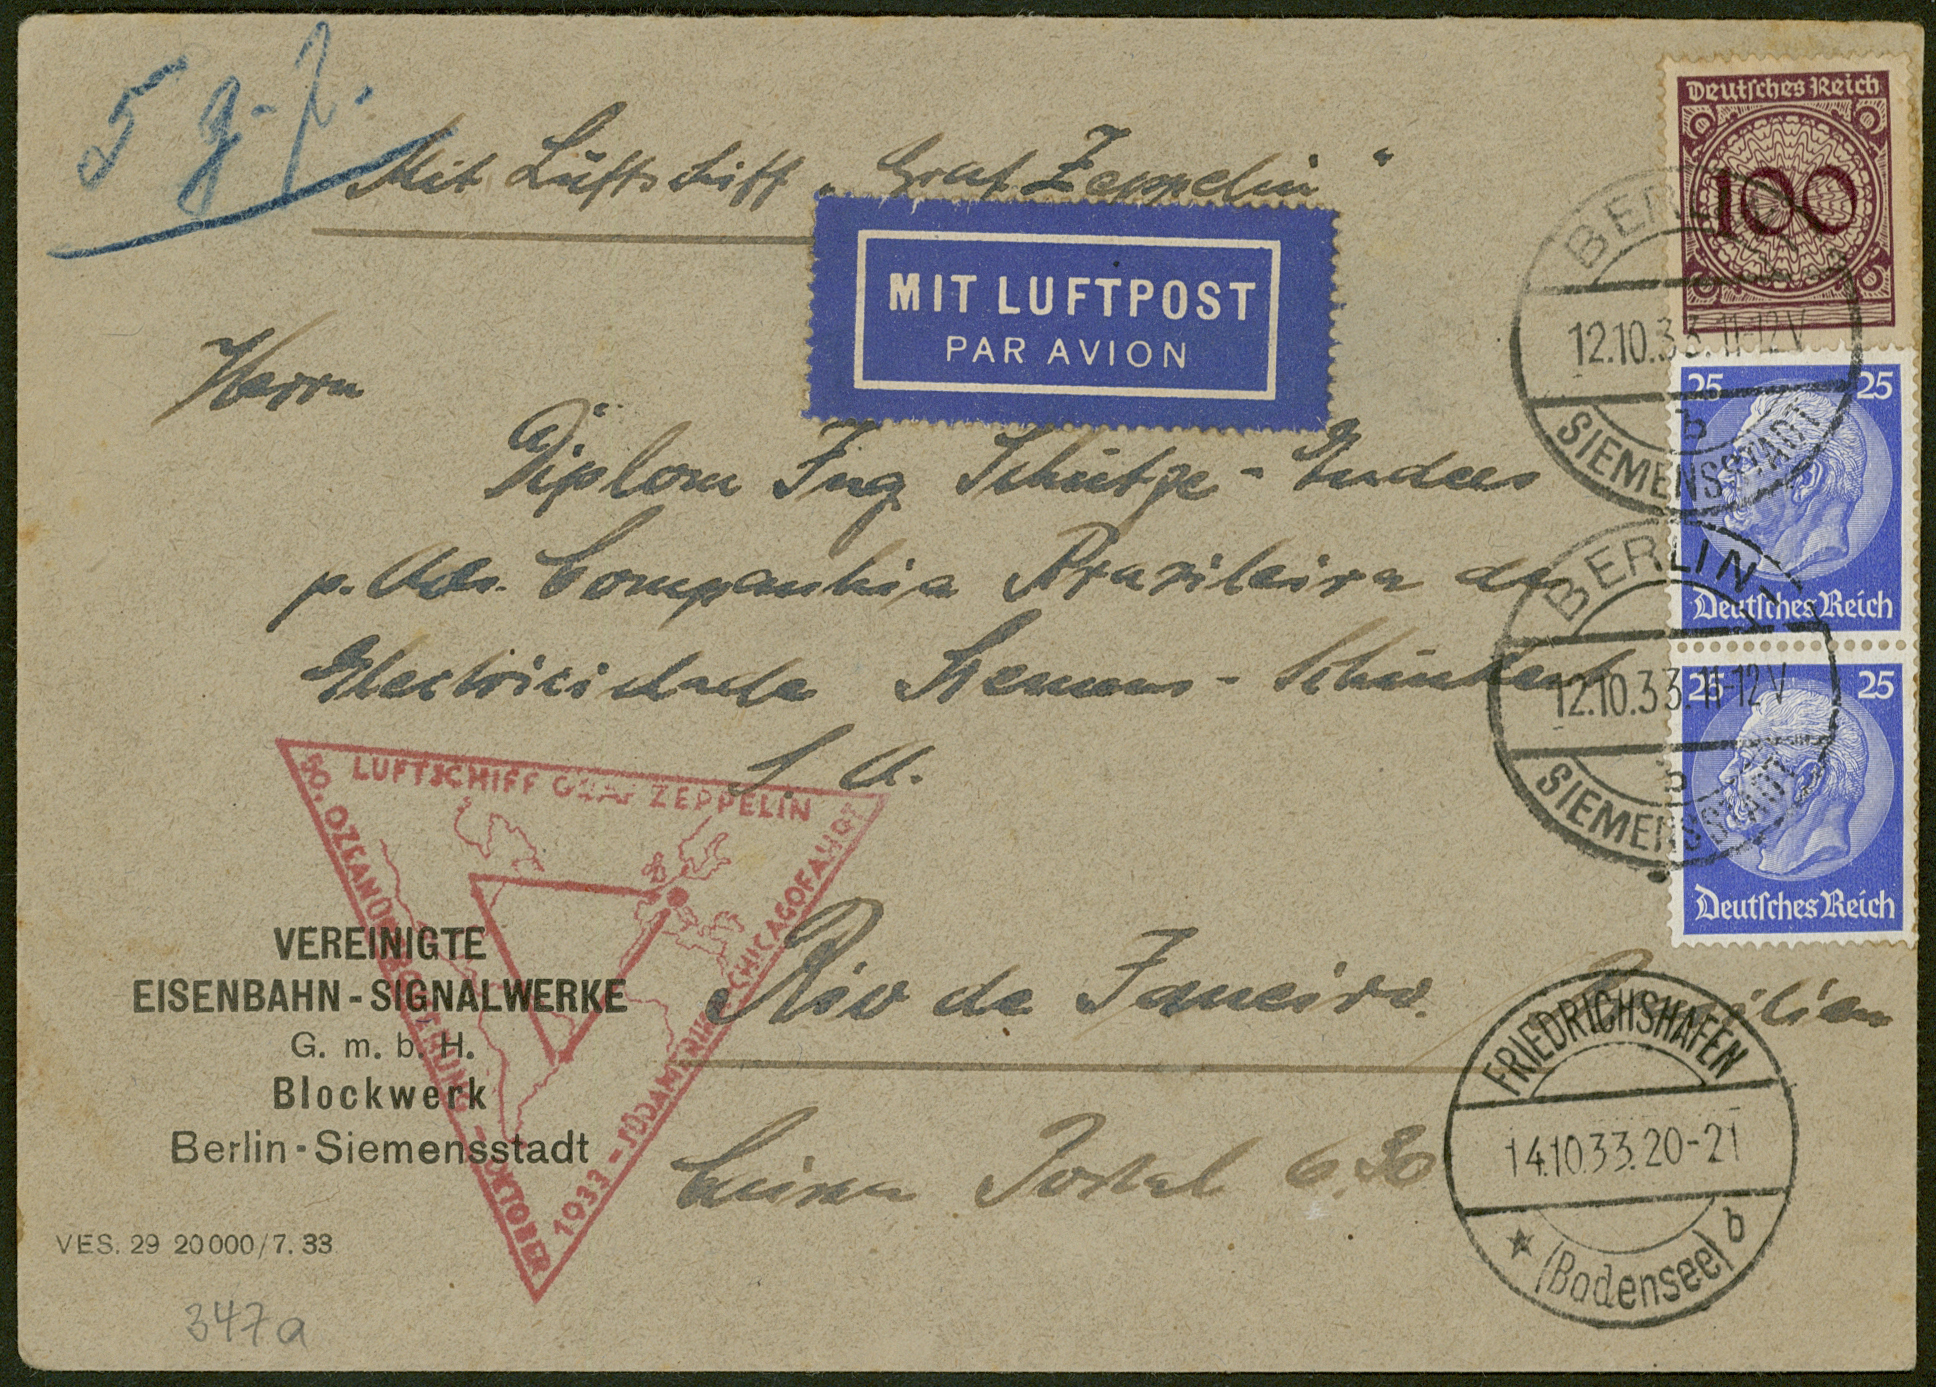 5 g.
Mit Luftschiff „Graf Zeppelin“
MIT LUFTPOST
PAR AVION
Deutsches Reich
100
BERLIN
12.10.33.11-12V
b
SIEMENSSTADT
25 25
Deutsches Reich
BERLIN
12.10.33.11-12V
b
SIEMENSSTADT
25 25
Deutsches Reich
Herrn
Diplom Ing Schütze-Endres
p. Adr. Companhia Brazileira de
Electricidade Siemens-Schuckert
S. A.
LUFTSCHIFF GRAF ZEPPELIN
50. OZEANÜBERQUERUNG - OKTOBER
1933 - SÜDAMERIKA-CHICAGOFAHRT
Rio de Janeiro. Brasilien
Caixa Postal 630
VEREINIGTE
EISENBAHN-SIGNALWERKE
G. m. b. H.
Blockwerk
Berlin-Siemensstadt
FRIEDRICHSHAFEN
14.10.33.20-21
(Bodensee) b
VES. 29 20000/7. 33
347a